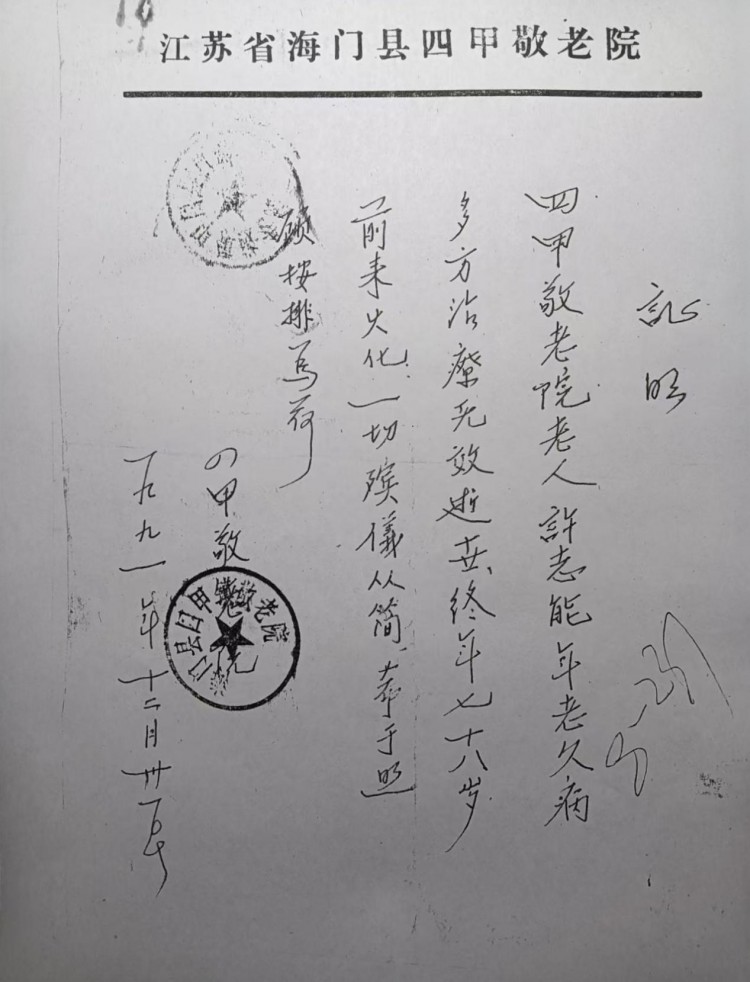 江苏省海门县四甲敬老院
証明
四甲敬老院老人許志能年老久病
多方治療无效逝世終年七十八岁
前来火化一切殡儀从简希于照
顾按排为荷
四甲敬老院
海门县四甲镇敬老院
一九九一年十二月卅一号